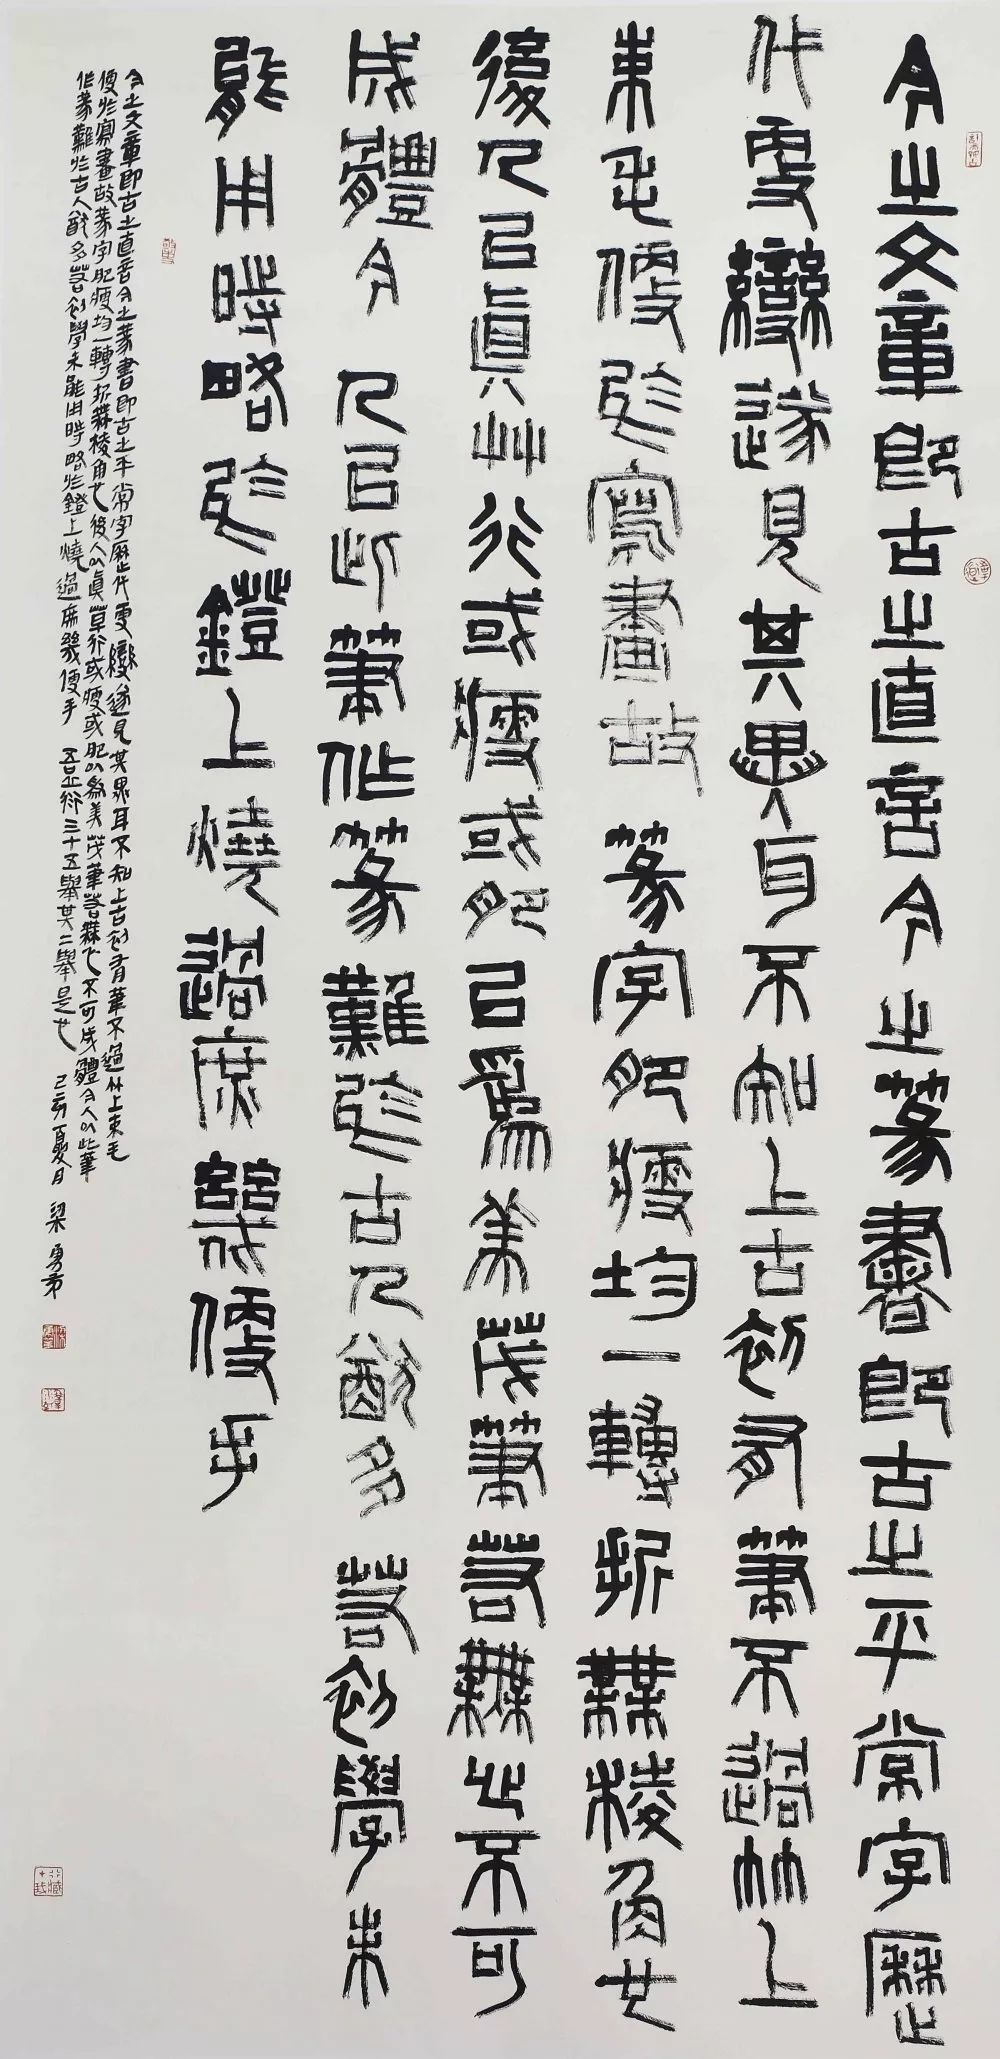 今之文章即古之直言今之篆書即古之平常字歷
代更變遂見其異耳不知上古初有筆不過竹上
束毛便於寫畫故篆字肥瘦均一轉折無棱角也
後人以真艸行或瘦或肥以為美茂筆若無止不可
成體今人以此筆作篆難於古人猶多若初學未
能用時略於鐙上燒過庶幾便手
今之文章即古之直言今之篆書即古之平常字歷代更變遂見其異耳不知上古初有筆不過竹上束毛
便於寫畫故篆字肥瘦均一轉折無棱角也後人以真草行或瘦或肥以為美茂筆若無心不可成體今人以此筆
作篆難於古人猶多若初學未能用時略於鐙上燒過庶幾便手 吾丘衍三十五舉其二舉是也 己亥夏月 梁勇章